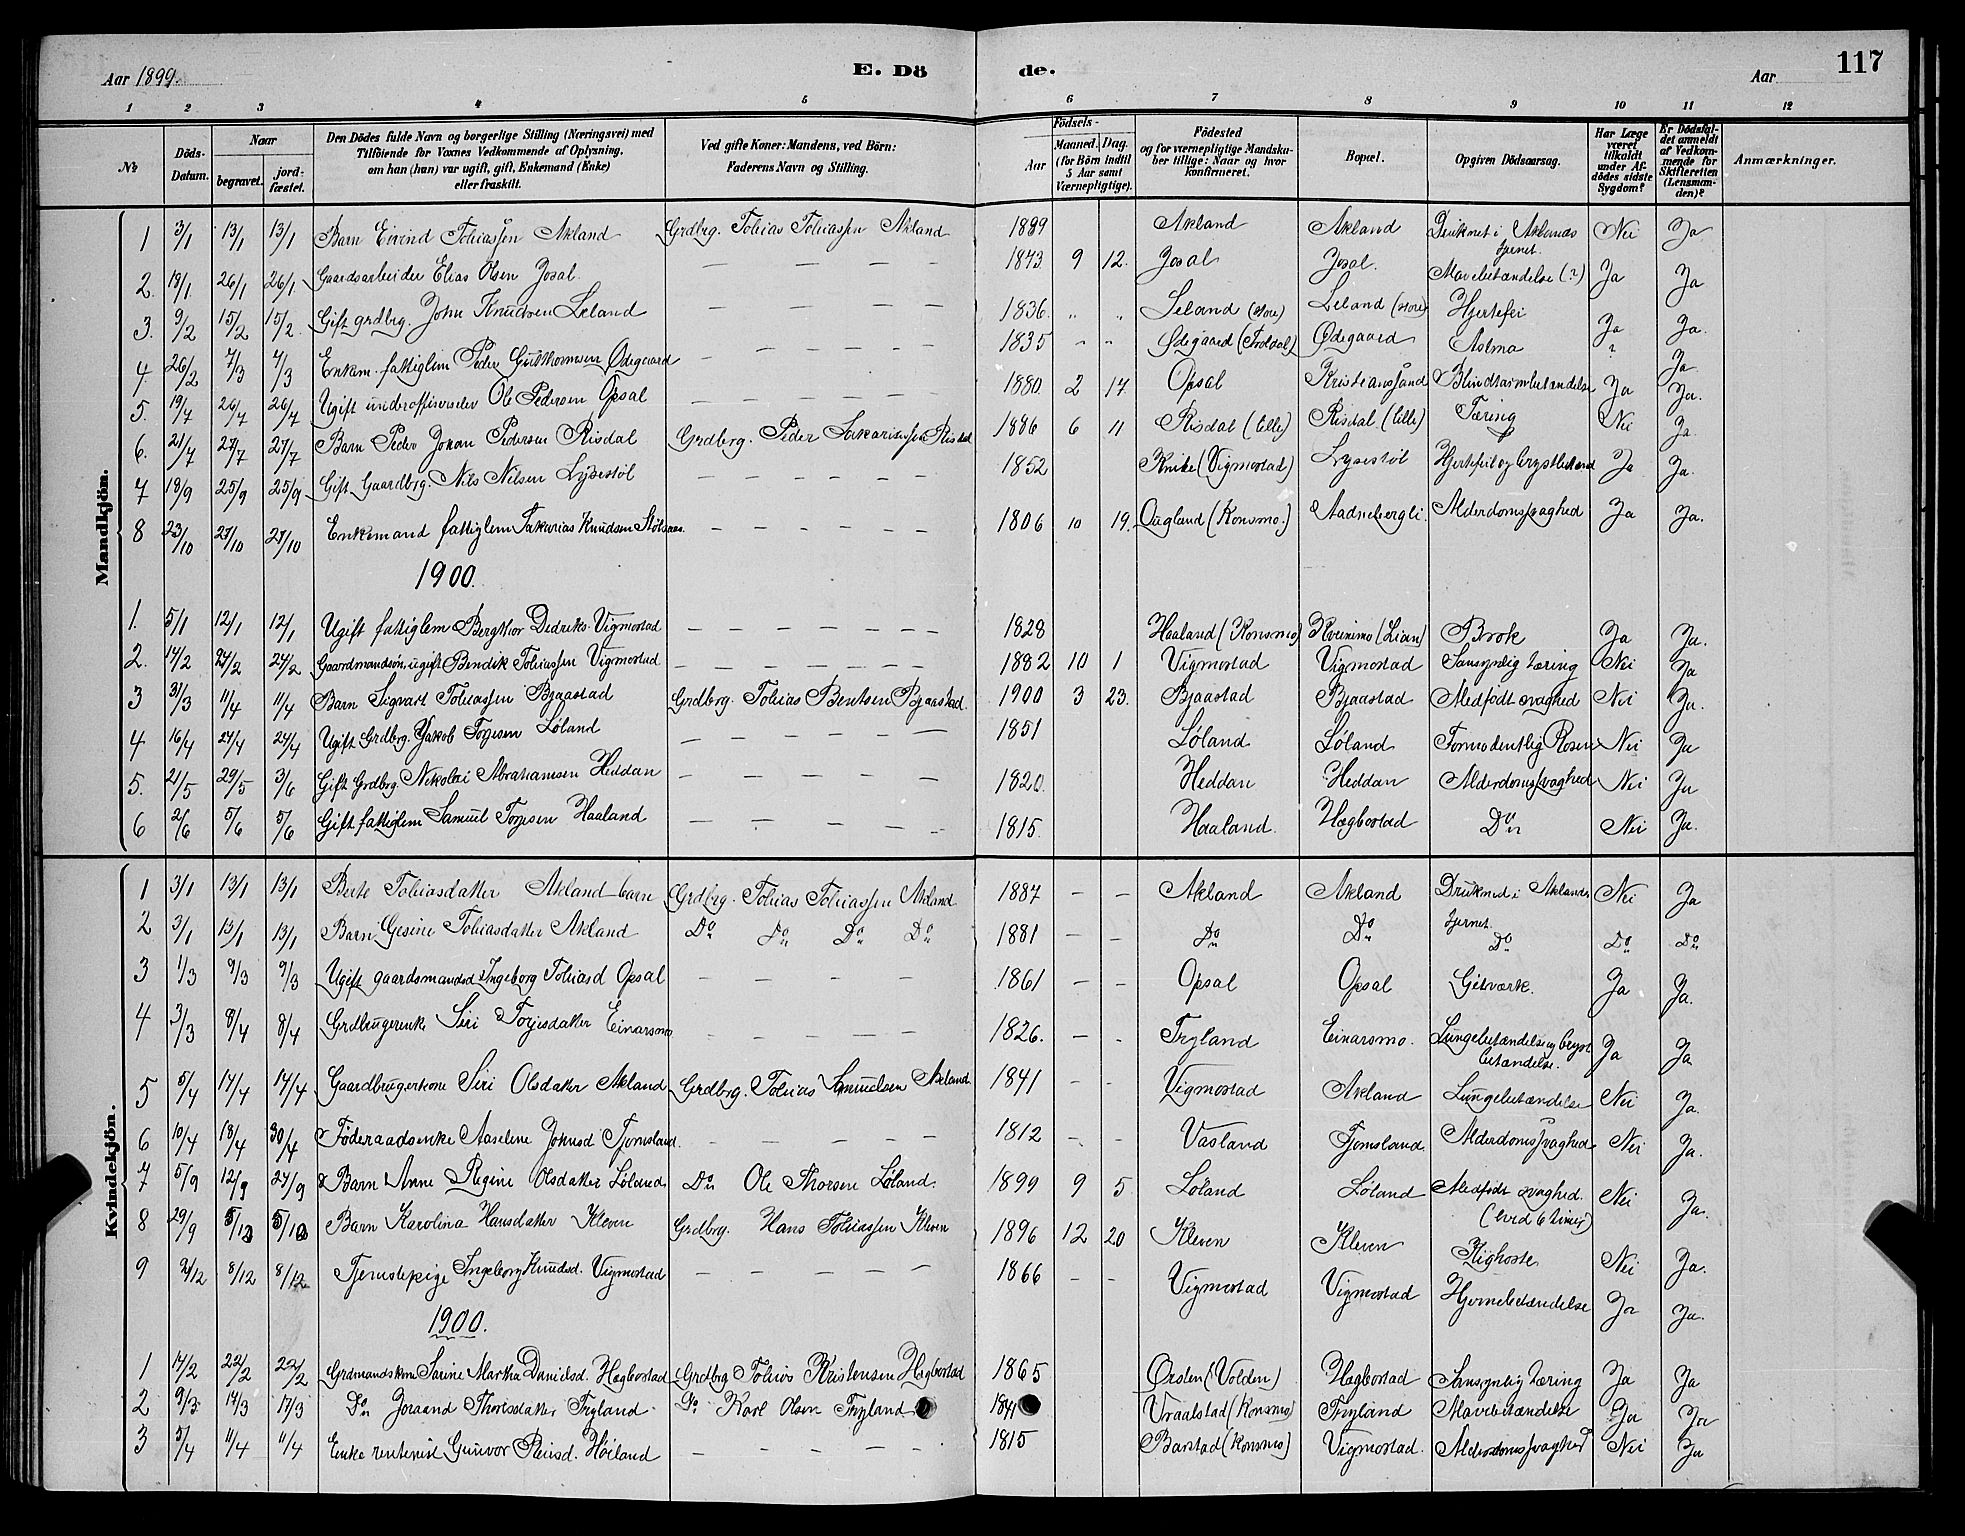 Aar 1899. E. Dö de. Aar 117
1 2 3 4 5 6 7 8 9 10 11 12
No Döds-Datum. Naar begravet. jord-fæstet. Den Dödes fulde Navn og borgerlige Stilling (Næringsvei) med Tilföiende for Voxnes Vedkommende af Oplysning, om han (hun) var ugift, gift, Enkemand (Enke) eller fraskilt. Ved gifte Koner: Mandens, ved Börn: Faderens Navn og Stilling. Födsels- Aar Maaned. Dag. (for Börn indtil 5 Aar samt Værnepligtige). Födested og for værnepligtige Mandska-ber tillige: Naar og hvor konfirmeret. Bopæl. Opgiven Dödsaarsag. Har Læge været tilkaldt under Af-dödes sidste Sygdom? Er Dödsfal-det anmeldt af Vedkom-mende for Skifteretten (Lensman-den)? Anmærkninger.
Mandkjön.
1 3/1 13/1 13/1 Barn Eivind Tobiassen Akland Grdbrg. Tobias Tobiassen Akland 1889 Akland Akland Druknet i Aklands tjernet. Nei Ja
2. 18/1 26/1 26/1 Gaardsarbeider Elias Olsen Josal — — — — — 1873 9 12. Josal Josal. Mavebetændelse (?) Ja Ja
3. 9/2 15/2 15/2. Gift grdbrg. John Knudsen Leland — — — — — 1836. " " Leland (store) Leland (store) Hjertefei Ja Ja.
4. 26/2 7/3 7/3 Enkem. fattiglem Peder Gutthormsen Ødegaard — — — — — 1835 " " Ødegaard (Troldal) Ødegaard Astma " Ja
5. 19/4 26/4 26/4 Ugift underofficerselev Ole Pedersen Opsal — — — — — 1880. 2 17. Opsal Kristianssand Blindtarmbetændelse Ja Ja.
6. 21/7 27/7 27/7 Barn Peder Johan Pedersen Risdal Grdbrg. Peder Sakariassen Risdal 1886 6 11 Risdal (lille) Risdal (lille) Tæring Nei Ja.
7 18/9 25/9 25/9 Gift Gaardbrg. Nils Nilsen Lysestøl — — — — — 1852 Knibe (Vigmostad) Lysestøl Hjertefeil og brystbetænd Ja Ja.
8 23/10 27/10 27/10 Enkemand fattiglem Sakarias Knudsen — — — — — 1806 10 19. Øugland (Konsmo.) Aadnebergli. Alderdomssvaghed Ja Ja.
1900.
1. 5/1 12/1 12/1 Ugift fattiglem Bergthor Dedriks. Vigmostad — — — — — — — 1828 Haaland (Konsmo) (Lian) Brok Ja Ja.
2. 14/2 24/2 24/2 Gaardmandssøn, ugift Bendik Tobiassen Vigmostad — — — — — — 1882 10 1 Vigmostad Vigmostad Sansynlig tæring Nei Ja
3 31/3 11/4 11/4 Barn Sigvart Tobiassen Bjaastad Grdbrg. Tobias Bentsen Bjaastad. 1900 3 23. Bjaastad Bjaastad Medfødt svaghed Nei Ja.
4 16/4 24/4 24/4 Ugift Grdbrg. Jakob Torjesen Løland — — — — — — 1851 Løland Løland Formodentlig Rosen Nei Ja
5. 21/5 29/5 3/6 Gift Grdbrg. Nikolai Abrahamsen Heddan — — — — — — 1820. Heddan Heddan Alderdomssvaghed Nei Ja
6 2/6 5/6 5/6 Gift fattiglem Samuel Torjesen Haaland — — — — — — 1815. Haaland. Hægbostad Do Nei Ja.
Kvindekjön.
1 3/1 13/1 13/1 Berte Tobiasdatter Akland barn Grdbrg. Tobias Tobiassen Akland 1887 — — Akland Akland Druknet i Aklands tjernet. Nei Ja
2 3/1 13/1 13/1 Barn Gesine Tobiasdatter Akland Do Do Do Do 1881 — — Do Do Do Do Do
3 1/3 9/3 9/3 Ugift gaardsmandsd Ingeborg Tobiasd Opsal — — — — — 1861 — — Opsal Opsal Gitværk. Ja Ja.
4 3/3 8/4 8/4 Grdbrugerenke Siri Torjesdatter Einarsmo — — — — — 1826. — — Tryland Einarsmo. Lungebetændelse og bryst betændelse. Ja Ja
5 5/4 14/4 14/4 Gaardbrugerkone Siri Olsdatter Akland Grdbrg. Tobias Samuelsen Akland. 1841 — — Vigmostad Akland Lungebetændelse Nei Ja.
6 10/4 18/4 30/4 Føderaadsenke Aaselene Johnsd Tjomsland. — — — — — 1812 — — Vasland Tjomsland. Alderdomssvaghed Nei Ja.
7 5/9 12/9 24/9 Barn Anne Regine Olsdatter Løland Do Ole Thorsen Løland. 1899 9 5 Løland Løland Medfødt svaghed. (levd 6 timer) Nei Ja.
8 29/9 5/12 5/12 Barn Karolina Hansdatter Kleven Grdbrg. Hans Tobiassen Kleven 1896 12 20 Kleven Kleven Kighoste Nei Ja.
9 8/12 8/12 Tjenestepige Ingeborg Knudsd. Vigmostad — — — — — 1866 — — Vigmostad Vigmostad Hjernebetændelse Ja Ja.
1900.
1 14/2 22/2 22/2 Grdmandskone Sarine Martha Danielsd. Hægbostad Grdbrg Tobias Kristensen Hægbostad 1865 Ørsten (Volden) Hægbostad Sansynlig tæring Ja Ja
2 9/3 14/3 17/3 Do Joraand Thorsdatter Tryland Do Karl Olsen Tryland 1841 Vraalstad (Konsmo) Tryland Mavebetændelse Ja Ja
3 5/4 11/4 11/4 Enke rentenist Gunvor Reiersd. Høiland — — — — — 1815 Barstad (Konsmo) Vigmostad. Alderdomssvaghed Nei Ja